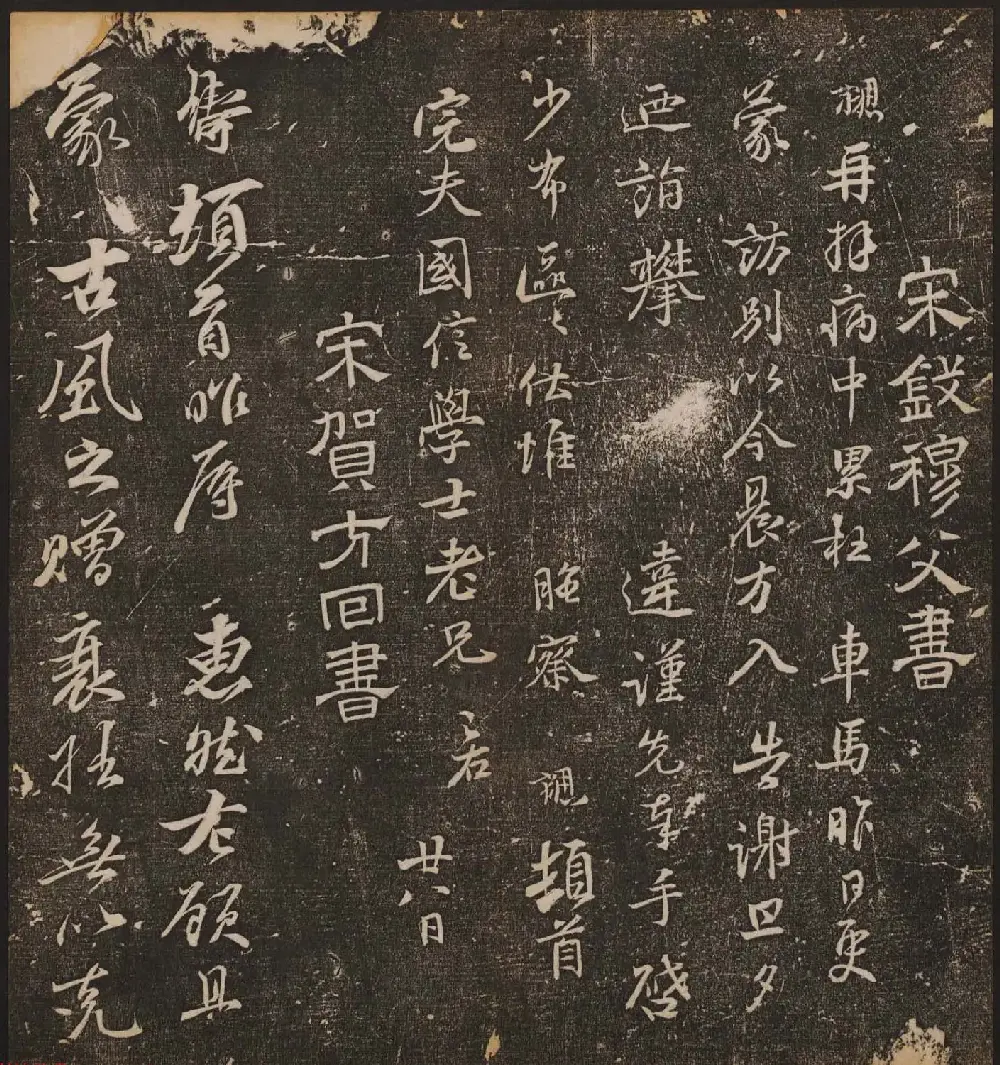 宋錢穆父書
勰再拜病中累枉 車馬昨日更
蒙 訪別以今晨方入 告謝旦夕
迺詣攀 違謹先奉手啓
少布區々伏惟 察 勰頓首
完夫國信學士老兄 廿八日
宋賀方回書
鑄頓首昨辱 惠然左顧且
蒙 古風之贈衰拙無以克